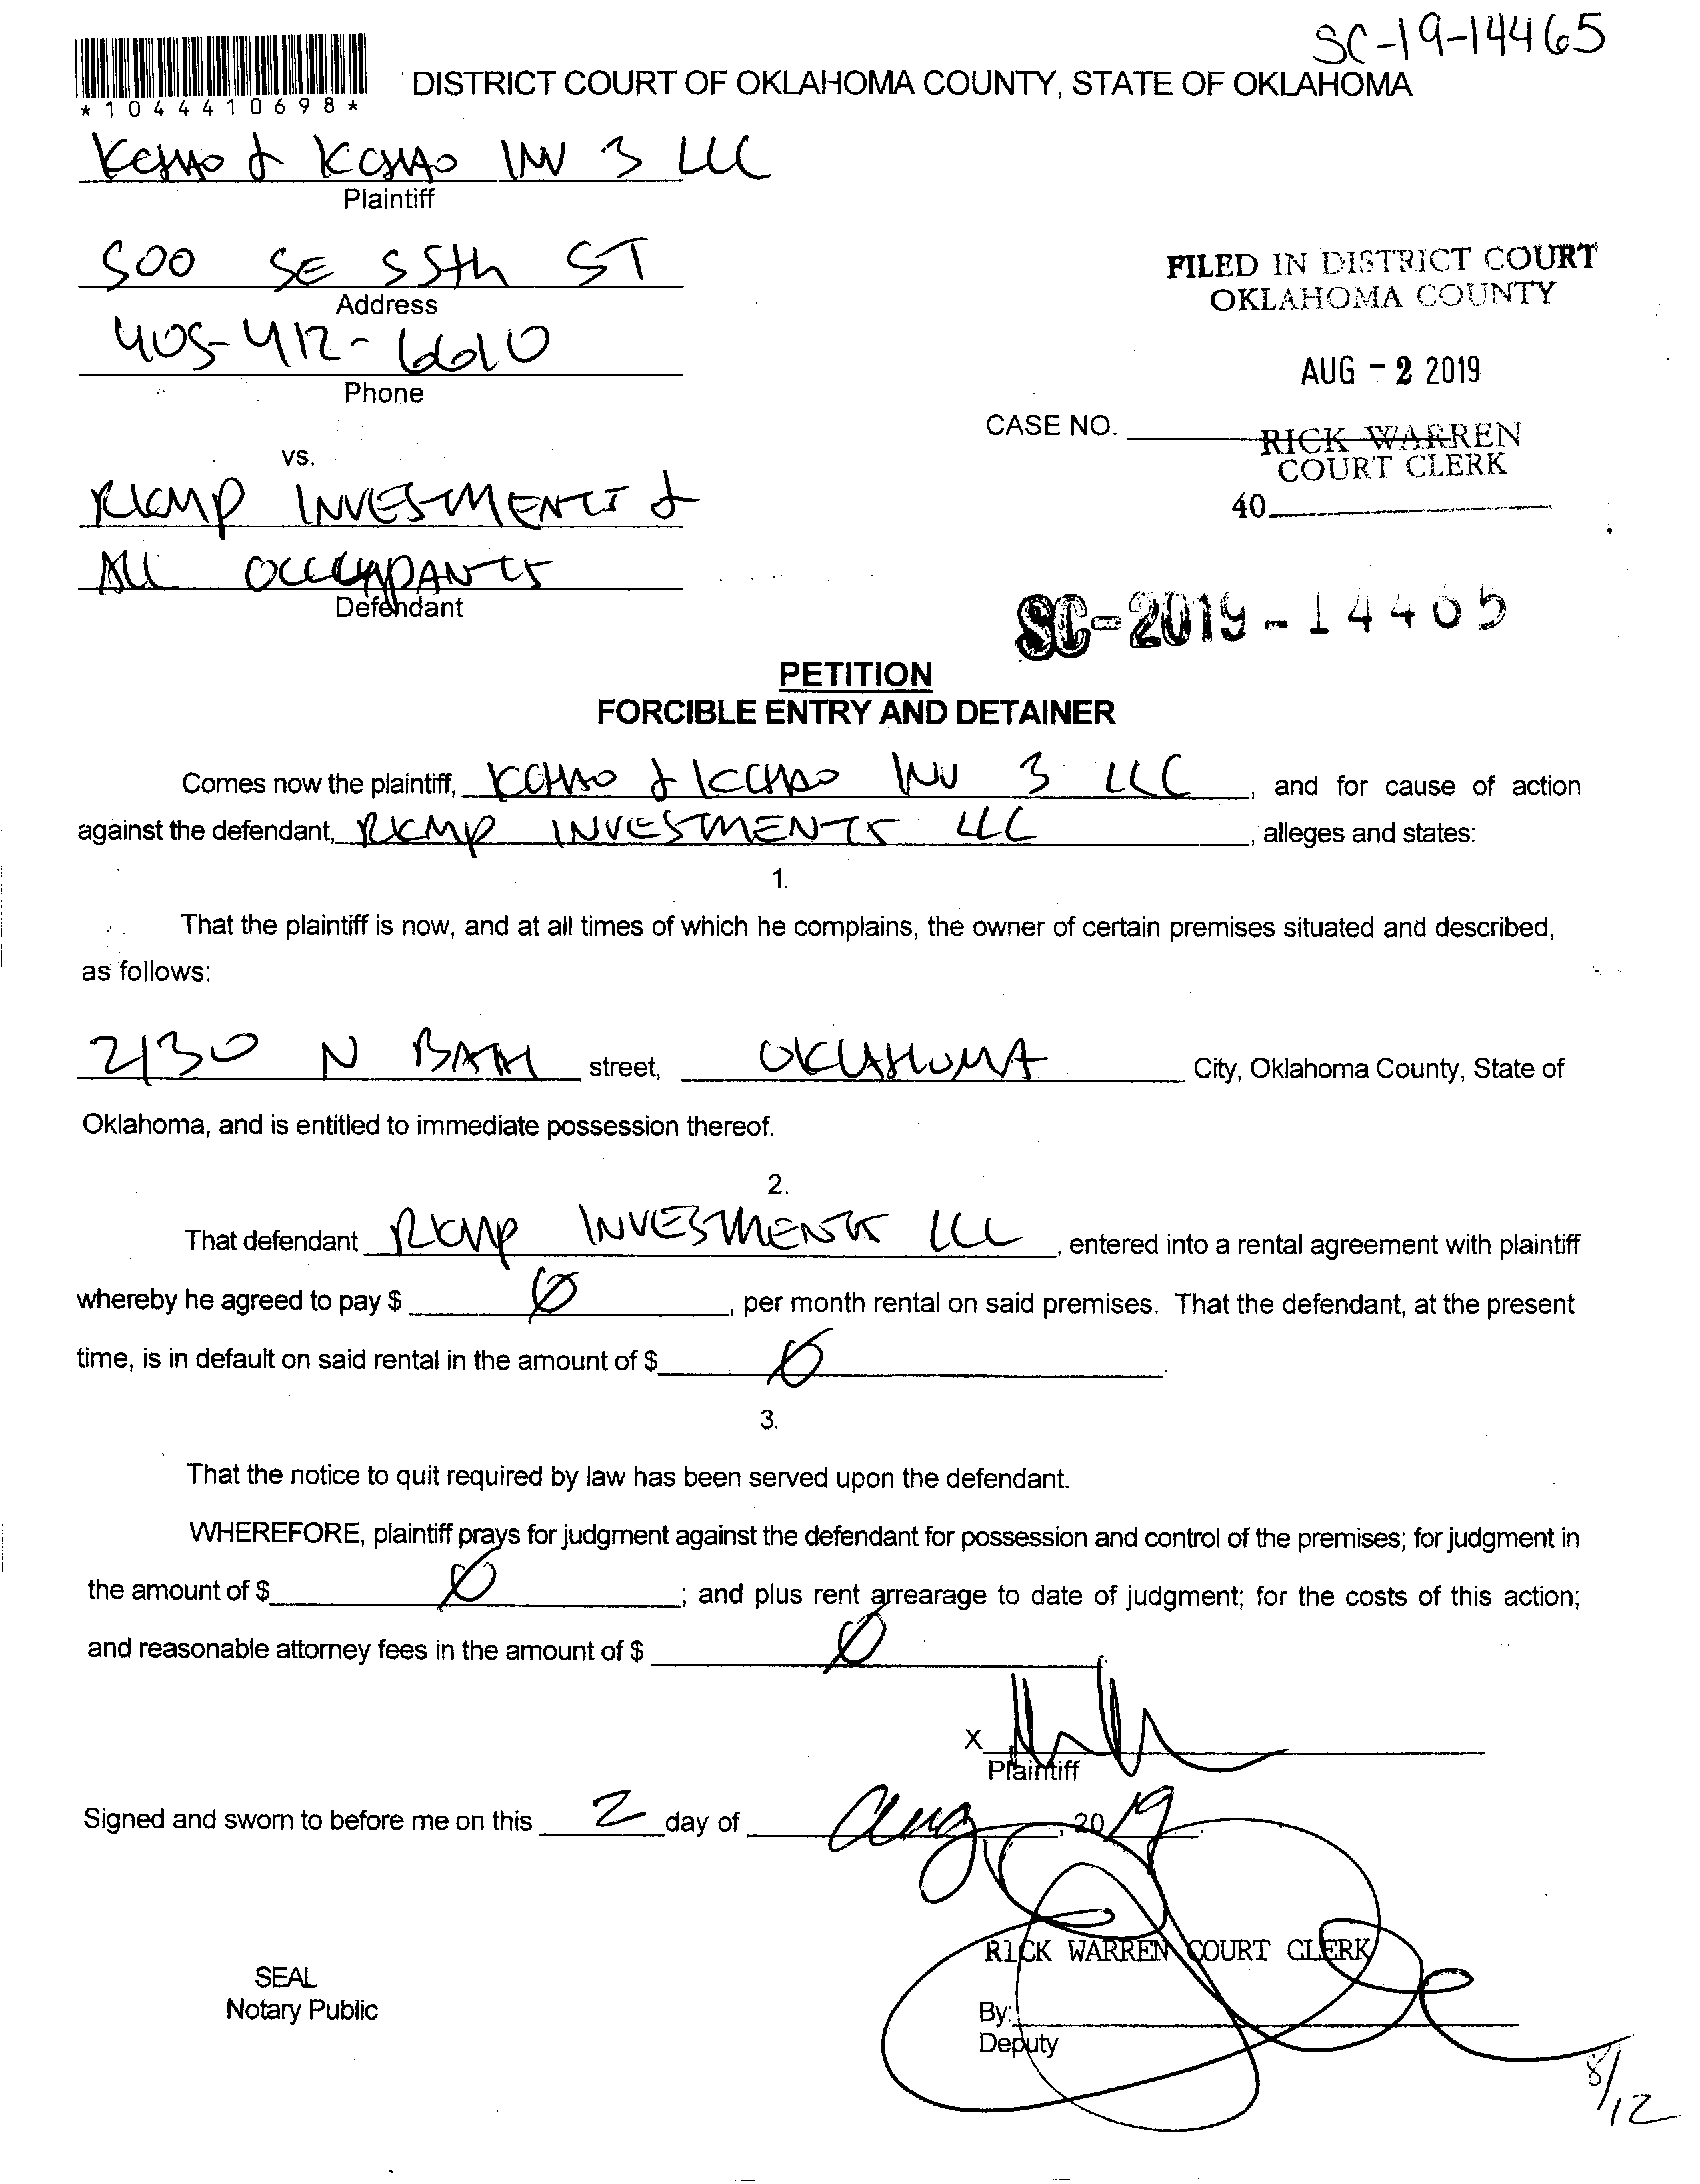 SC-19-14465
*1044410698*
DISTRICT COURT OF OKLAHOMA COUNTY, STATE OF OKLAHOMA
KCHAO & KCHAO INV 3 LLC
Plaintiff
500 SE 55th ST
Address
405-412-6610
Phone
FILED IN DISTRICT COURT
OKLAHOMA COUNTY
AUG - 2 2019
CASE NO.
RICK WARREN
COURT CLERK
40
vs.
RKMP INVESTMENTS &
ALL OCCUPANTS
Defendant
SC-2019-14465
PETITION
FORCIBLE ENTRY AND DETAINER
Comes now the plaintiff, KCHAO & KCHAO INV 3 LLC, and for cause of action
against the defendant, RKMP INVESTMENTS LLC, alleges and states:
1.
That the plaintiff is now, and at all times of which he complains, the owner of certain premises situated and described,
as follows:
2130 N street, OKLAHOMA City, Oklahoma County, State of
Oklahoma, and is entitled to immediate possession thereof.
2.
That defendant RKMP INVESTMENTS LLC, entered into a rental agreement with plaintiff
whereby he agreed to pay $ Ø, per month rental on said premises. That the defendant, at the present
time, is in default on said rental in the amount of $ Ø.
3.
That the notice to quit required by law has been served upon the defendant.
WHEREFORE, plaintiff prays for judgment against the defendant for possession and control of the premises; for judgment in
the amount of $ Ø; and plus rent arrearage to date of judgment; for the costs of this action;
and reasonable attorney fees in the amount of $ Ø.
X
Plaintiff
Signed and sworn to before me on this 2 day of Aug, 2019.
RICK WARREN COURT CLERK
SEAL
Notary Public
By:
Deputy
8/12